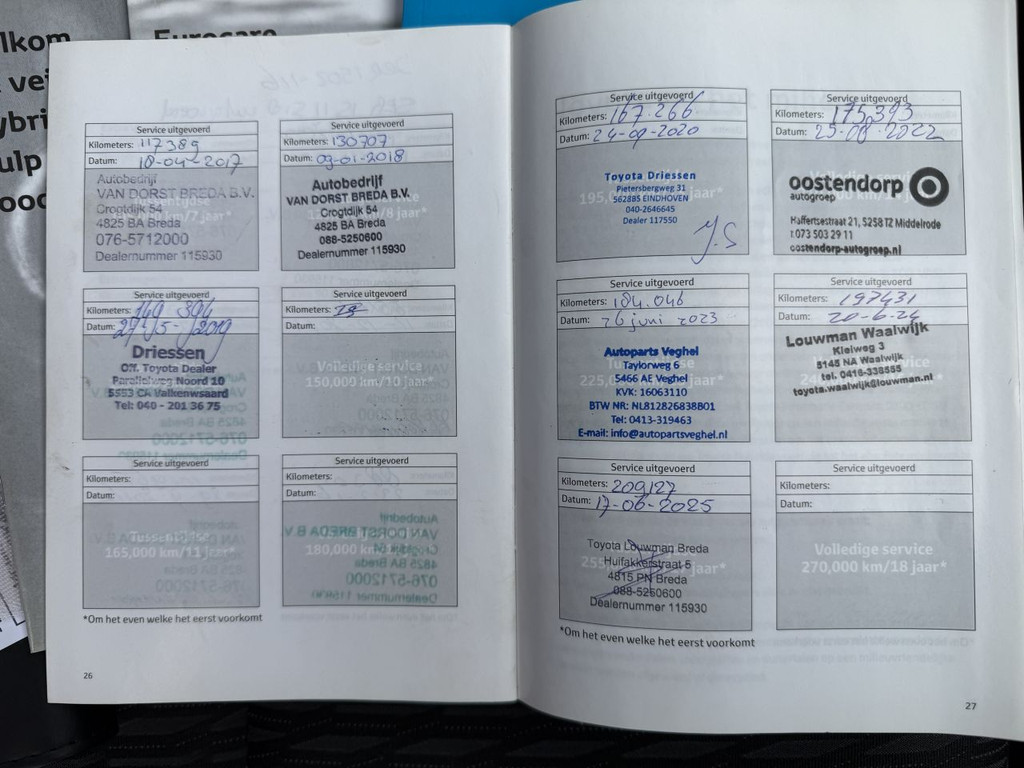 Eurocare
Service uitgevoerd
Kilometers: 117389
Datum: 18-04-2017
Autobedrijf
VAN DORST BREDA B.V.
Crogtdijk 54
4825 BA Breda
076-5712000
Dealernummer 115930
Service uitgevoerd
Kilometers: 130707
Datum: 09-01-2018
Autobedrijf
VAN DORST BREDA B.V.
Crogtdijk 54
4825 BA Breda
088-5250600
Dealernummer 115930
Service uitgevoerd
Kilometers: 149 394
Datum: 29/5-/2019
Driessen
Off. Toyota Dealer
Parallelweg Noord 10
5553 CA Valkenswaard
Tel: 040 - 201 36 75
Service uitgevoerd
Kilometers:
Datum:
Volledige service
150,000 km/10 jaar*
Service uitgevoerd
Kilometers:
Datum:
Tussentijdse
165,000 km/11 jaar*
Service uitgevoerd
Kilometers:
Datum:
180,000 km
*Om het even welke het eerst voorkomt
26
Service uitgevoerd
Kilometers: 167.266
Datum: 24-09-2020
Toyota Driessen
Pietersbergweg 31
5628BS EINDHOVEN
040-2646645
Dealer 117550
J.S
Service uitgevoerd
Kilometers: 175393
Datum: 25-08-2022
oostendorp
autogroep
Haffertsestraat 21, 5258 TZ Middelrode
t 073 503 29 11
oostendorp-autogroep.nl
Service uitgevoerd
Kilometers: 184.046
Datum: 26 juni 2023
Autoparts Veghel
Taylorweg 6
5466 AE Veghel
KVK: 16063110
BTW NR: NL812826838B01
Tel: 0413-319463
E-mail: info@autopartsveghel.nl
Service uitgevoerd
Kilometers: 197431
Datum: 20-6-24
Louwman Waalwijk
Kleiweg 3
5145 NA Waalwijk
tel. 0416-338555
toyota.waalwijk@louwman.nl
Service uitgevoerd
Kilometers: 209127
Datum: 17-06-2025
Toyota Louwman Breda
Huifakkerstraat 5
4815 PN Breda
088-5250600
Dealernummer 115930
Service uitgevoerd
Kilometers:
Datum:
Volledige service
270,000 km/18 jaar*
*Om het even welke het eerst voorkomt
27